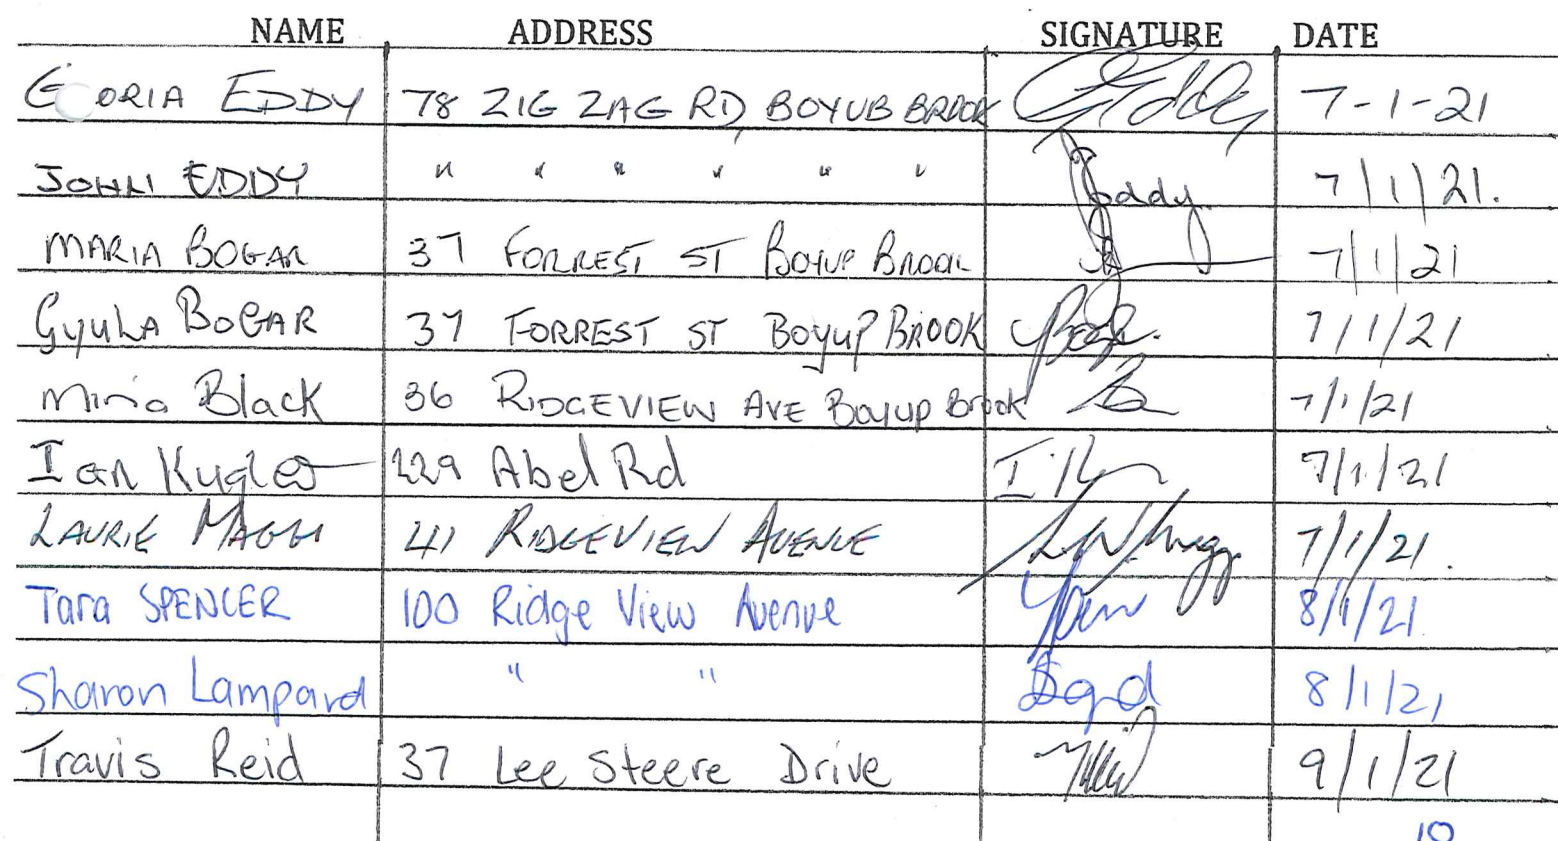 NAME ADDRESS SIGNATURE DATE
EDDY 78 ZIG ZAG RD, BOYUB BROOK 7-1-21
JOHN EDDY " " " " " " 7/1/21.
MARIA BOGAR 37 FORREST ST BOYUP BROOK 7/1/21
GYULA BOGAR 37 FORREST ST BOYUP BROOK 7/1/21
Black 36 RIDGEVIEW AVE Boyup Brook 7/1/21
Ian Kugler 229 Abel Rd 7/1/21
LAURIE MAGGI 41 RIDGEVIEW AVENUE 7/1/21.
Tara SPENCER 100 Ridge View Avenue 8/1/21.
Sharon Lampard " " 8/1/21
Travis Reid 37 Lee Steere Drive 9/1/21
10